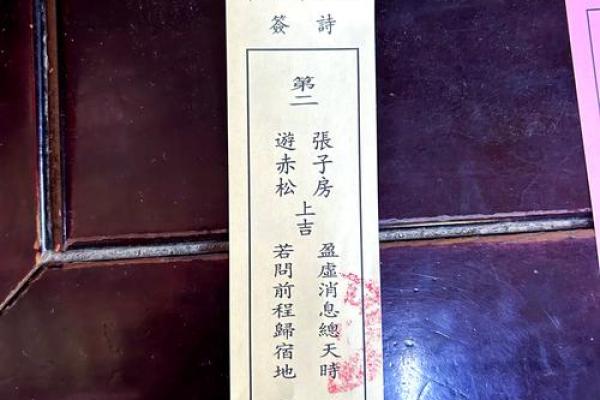 詩簽
第二
張子房
遊赤松
上吉
盈虛消息總天時
若問前程歸宿地